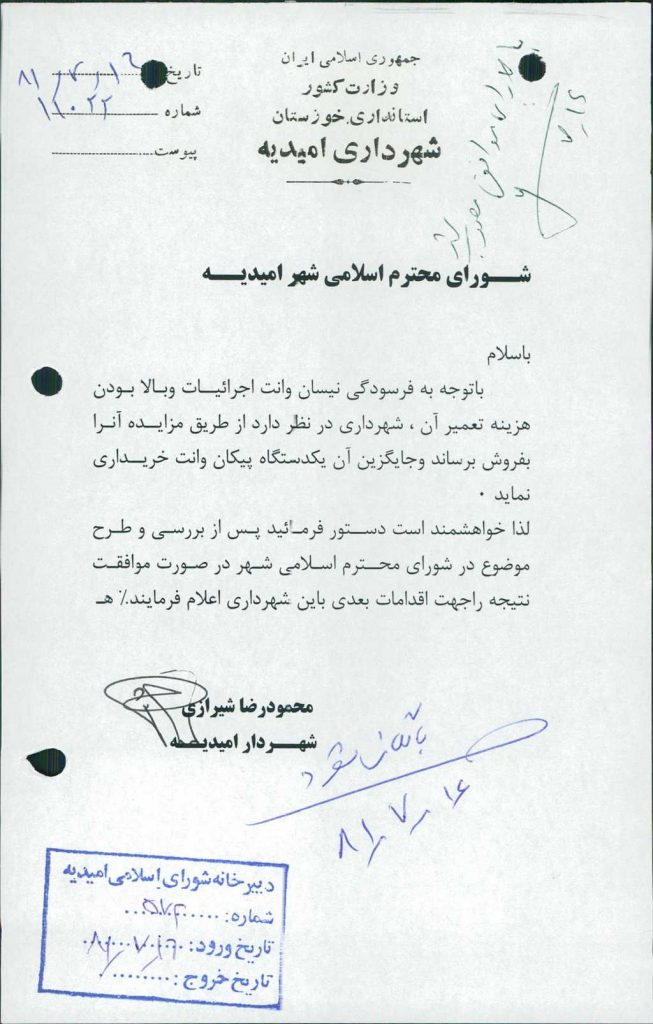 جمهوری اسلامی ایران
وزارت کشور
استانداری خوزستان
شهرداری امیدیه
تاریخ ۸۱/۷/۱۶
شماره ۱۱۰۲۲
پیوست
با دارای موافق تصویب شد
شورای محترم اسلامی شهر امیدیه
باسلام
باتوجه به فرسودگی نیسان وانت اجرائیات وبالا بودن
هزینه تعمیر آن ، شهرداری در نظر دارد از طریق مزایده آنرا
بفروش برساند وجایگزین آن یکدستگاه پیکان وانت خریداری
نماید ۰
لذا خواهشمند است دستور فرمائید پس از بررسی و طرح
موضوع در شورای محترم اسلامی شهر در صورت موافقت
نتیجه راجهت اقدامات بعدی باین شهرداری اعلام فرمایند٪ هـ
محمودرضا شیرازی
شهردار امیدیه
شود
۸۱/۷/۱۶
دبیرخانه شورای اسلامی امیدیه
شماره:
تاریخ ورود: ۸۱/۷/۱۶
تاریخ خروج: